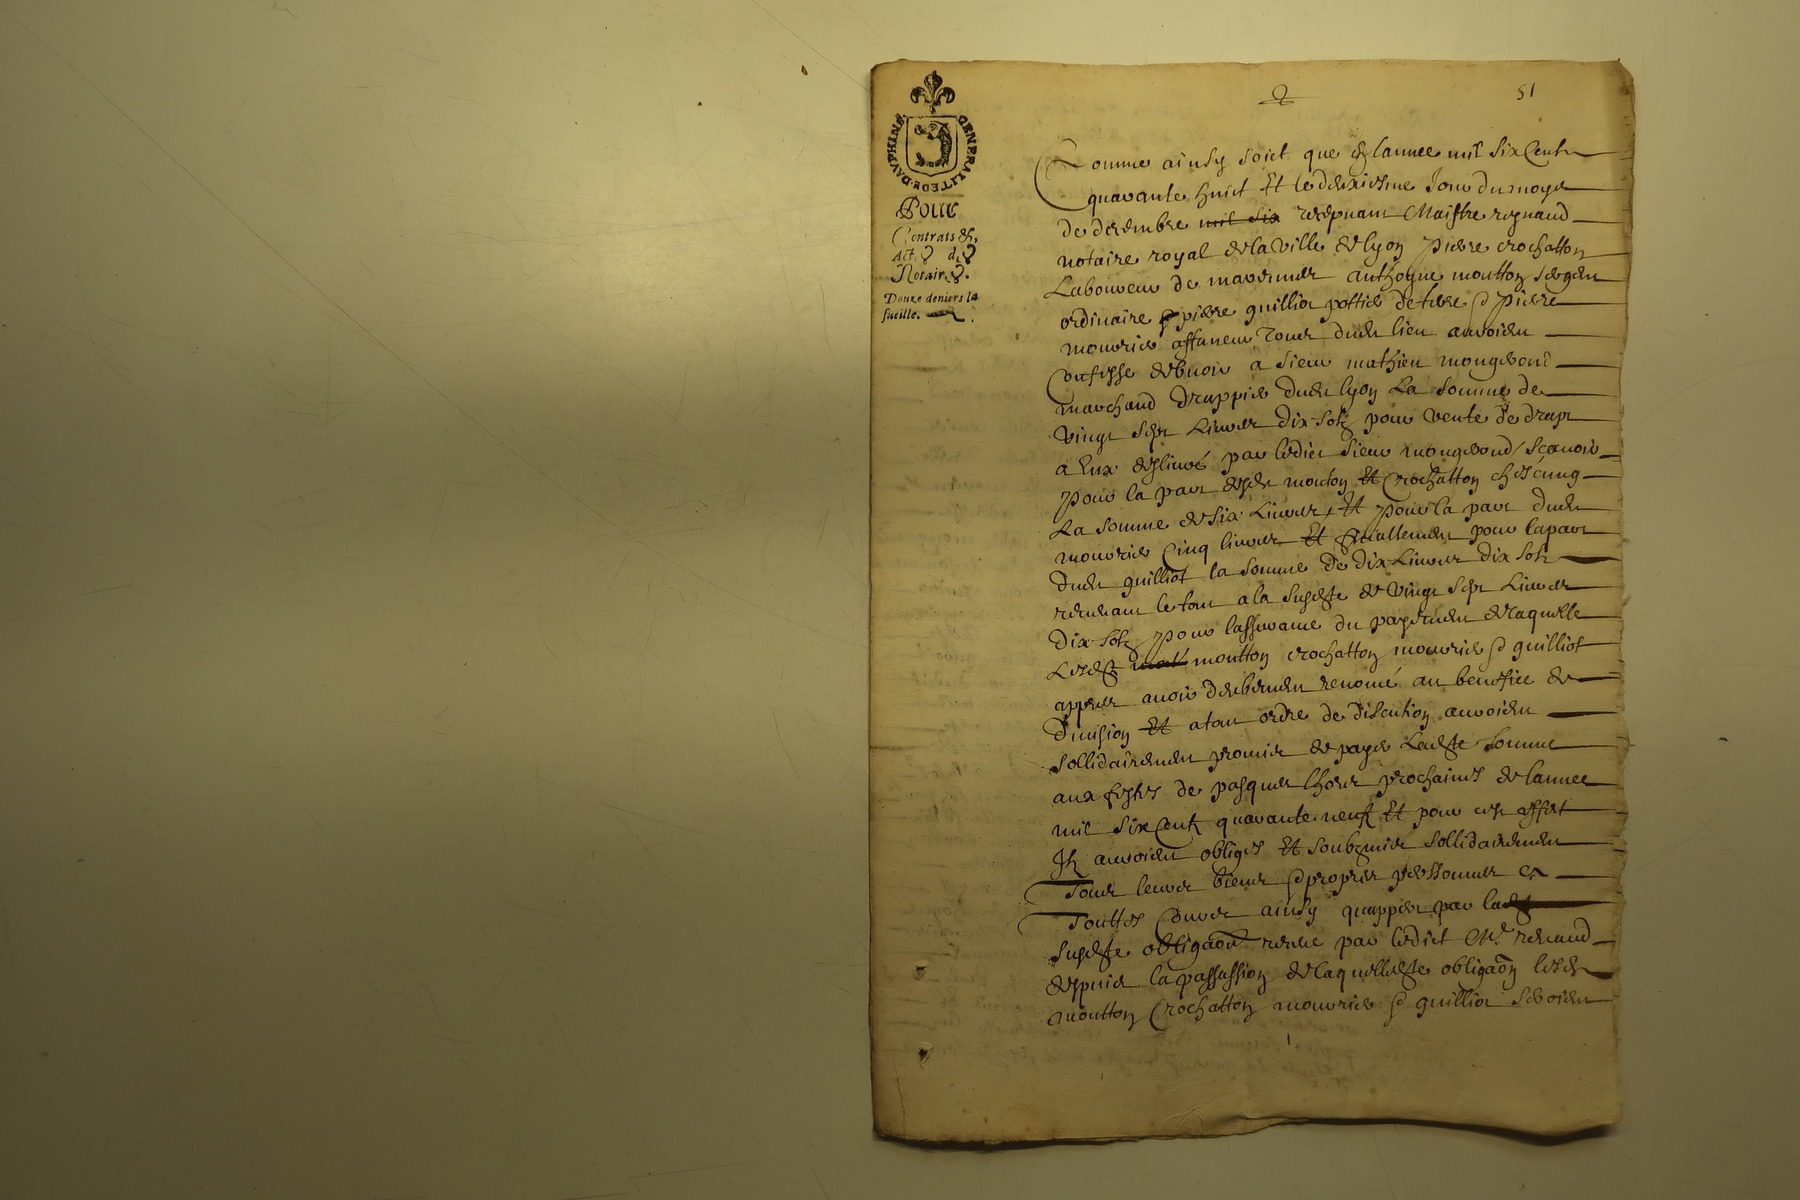 GENERALITE DE DAUPHINE
Pour
Contrats &
Act. de
Notair.
Douze deniers la
fueille.
2
51
Comme ainsy soict que en lannee mil six Centz
quarante huict Et le deuxiesme Jour du moys
de decembre mil six recepuant Maistre regnaud
notaire royal de la ville de lyon pierre crochatton
Laboureur de anthoyne moutton sergen
ordinaire pierre guilliot pottier de terre & pierre
mourier affaneur tous dudt lieu auroient
Confesse debuoir a sieur mathieu mongeroud
marchand drappier dudt lyon La somme de
vingt sept Liures dix solz pour vente de drapt
a Eux desliure par ledict sieur mongeroud / scauoir
pour la part desdt mouton Et Crochatton chescung
La somme de six Liures, Et pour la part dudt
mourier Cinq liures Et finallement pour la part
dudt guilliot la somme de dix Liures dix solz
reuenant le tout a la susdte de vingt sept Liures
dix solz pour lassurance du payement de laquelle
Lesdts moutton crochatton mourier & guilliot
appres auoir deubement renonce au benefice de
diuision Et a tout ordre de discution auroient
sollidairement promis de payer Ladte somme
aux festes de pasques lhors prochaines de lannee
mil six Centz quarante neufz Et pour cest effet
Ilz auroient obliges Et soubzmis sollidairement
Tous leurs biens & propres perssonnes Ca
Touttes Cours ainsy quappert par la
susdte obligaon receue par ledict Me renaud
despuis la passassion de laquelledte obligaon lesdts
moutton Crochatton mourier & guilliot seroient